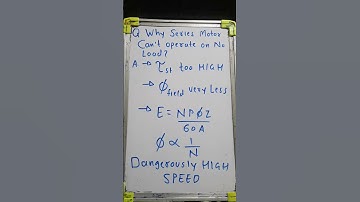 Q Why Series Motor
Can't operate on No
Load?
A → τst too HIGH
→ ϕfield very Less
→ E = NPϕZ
60A
ϕ ∝ 1
N
Dangerously HIGH
SPEED